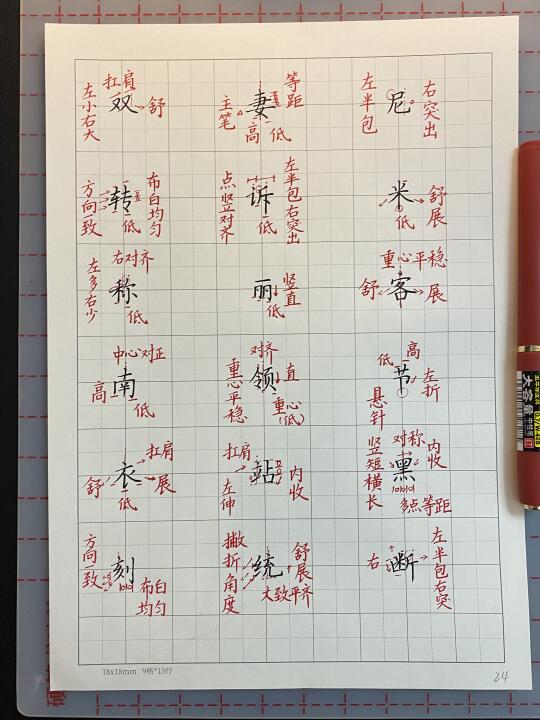 左小右大
扛肩
双
舒
主笔
妻
等距
高
低
左半包
尼
右突出
方向一致
转
布白均匀
低
点竖对齐
诉
左半包右突出
低
米
舒展
低
左多右少
右对齐
称
低
丽
竖直
低
重心平稳
舒
客
展
中心对正
高
南
低
重心平稳
对齐
领
直
重心(低)
低
高
节
左折
悬针
舒
衣
扛肩
展
低
扛肩
左伸
站
内收
竖短横长
对称
熏
内收
多点等距
方向一致
刻
布白均匀
撇折角度
统
舒展
大致平齐
右
断
左半包右突
大容量
中性笔
18x18mm 9格*13行
24